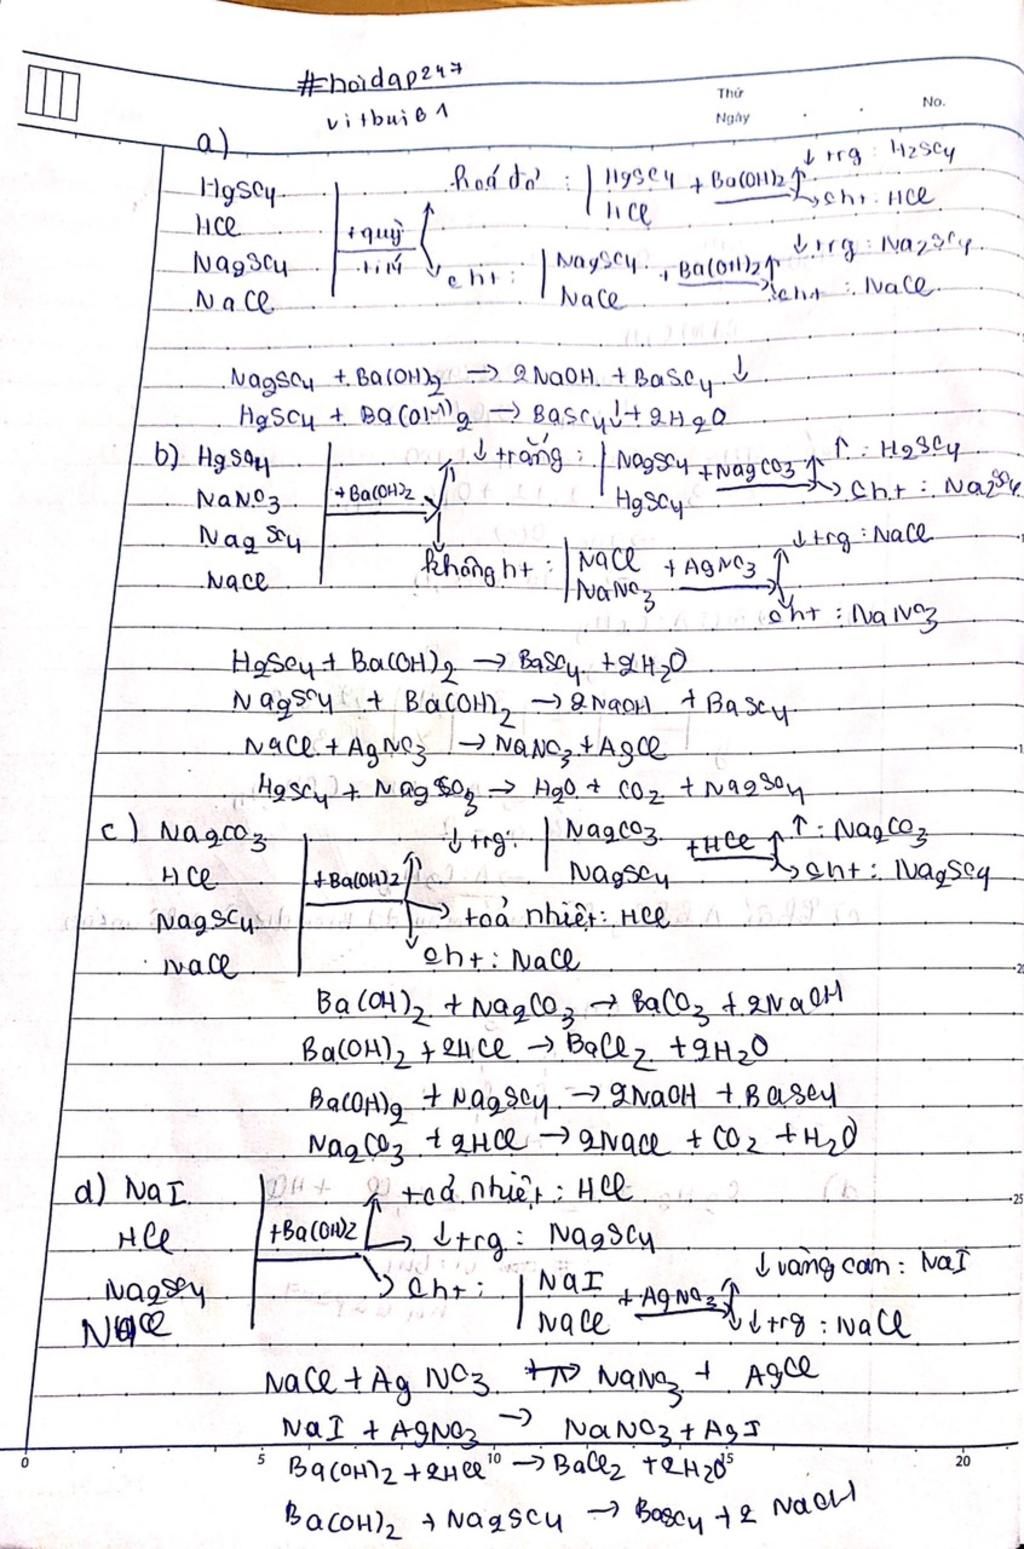 #hoidap247
vitbui61
Thứ
Ngày
No.
a)
H2SO4
HCl
Na2SO4
NaCl
+quỳ
tím
hoá đỏ : H2SO4 + Ba(OH)2 ↓ trg : H2SO4
HCl cht : HCl
cht : Na2SO4 + Ba(OH)2 ↓ trg : Na2SO4
NaCl cht : NaCl
Na2SO4 + Ba(OH)2 → 2NaOH + BaSO4 ↓
H2SO4 + Ba(OH)2 → BaSO4 ↓ + 2H2O
b) H2SO4
NaNO3
Na2SO4
NaCl
+Ba(OH)2
↓ trắng : Na2SO4 + Na2CO3 ↑ : H2SO4
H2SO4 cht : Na2SO4
không ht : NaCl + AgNO3 ↓ trg : NaCl
NaNO3 cht : NaNO3
H2SO4 + Ba(OH)2 → BaSO4 + 2H2O
Na2SO4 + Ba(OH)2 → 2NaOH + BaSO4
NaCl + AgNO3 → NaNO3 + AgCl
H2SO4 + Na2SO3 → H2O + CO2 + Na2SO4
c) Na2CO3
HCl
Na2SO4
NaCl
+Ba(OH)2
↓ trg : Na2CO3 + HCl ↑ : Na2CO3
Na2SO4 cht : Na2SO4
→ toả nhiệt : HCl
cht : NaCl
Ba(OH)2 + Na2CO3 → BaCO3 + 2NaOH
Ba(OH)2 + 2HCl → BaCl2 + 2H2O
Ba(OH)2 + Na2SO4 → 2NaOH + BaSO4
Na2CO3 + 2HCl → 2NaCl + CO2 + H2O
d) NaI
HCl
Na2SO4
NaCl
+Ba(OH)2
toả nhiệt : HCl
↓ trg : Na2SO4
cht : NaI + AgNO3 ↓ vàng cam : NaI
NaCl ↓ trg : NaCl
NaCl + AgNO3 → NaNO3 + AgCl
NaI + AgNO3 → NaNO3 + AgI
0 5 10 15 20
Ba(OH)2 + 2HCl → BaCl2 + 2H2O
Ba(OH)2 + Na2SO4 → BaSO4 + 2 NaOH